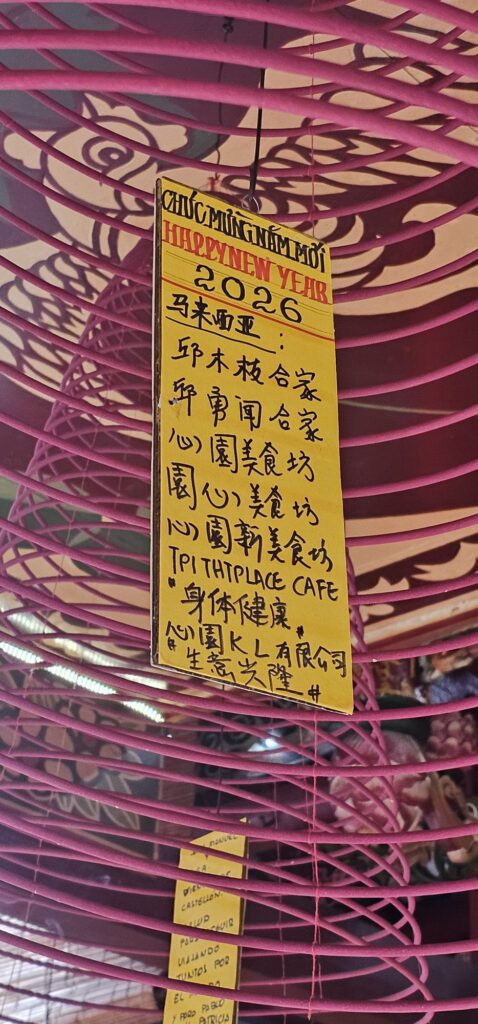 CHÚC MỪNG NĂM MỚI
HAPPY NEW YEAR
2026
马来西亚：
邱木枝合家
邱勇闻合家
心園美食坊
園心美食坊
心園新美食坊
TPI THTPLACE CAFE
"身体健康"
心園KL有限公司
"生意兴隆"
MANUEL
Y
CASTELLON
SALUD
PARA SEGUIR
VIAJANDO
JUNTOS POR
EL MUNDO
Y PARA PABLO
PATRICIA